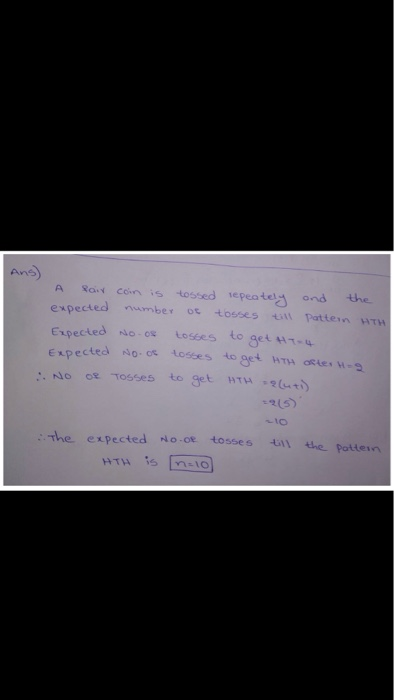 Ans)
A fair coin is tossed repeately and the
expected number of tosses till pattern HTH
Expected No. of tosses to get HT=4
Expected No. of tosses to get HTH after H=2
∴ No of Tosses to get HTH =2(4+1)
=2(5)
=10
∴ The expected No. of tosses till the pattern
HTH is n=10